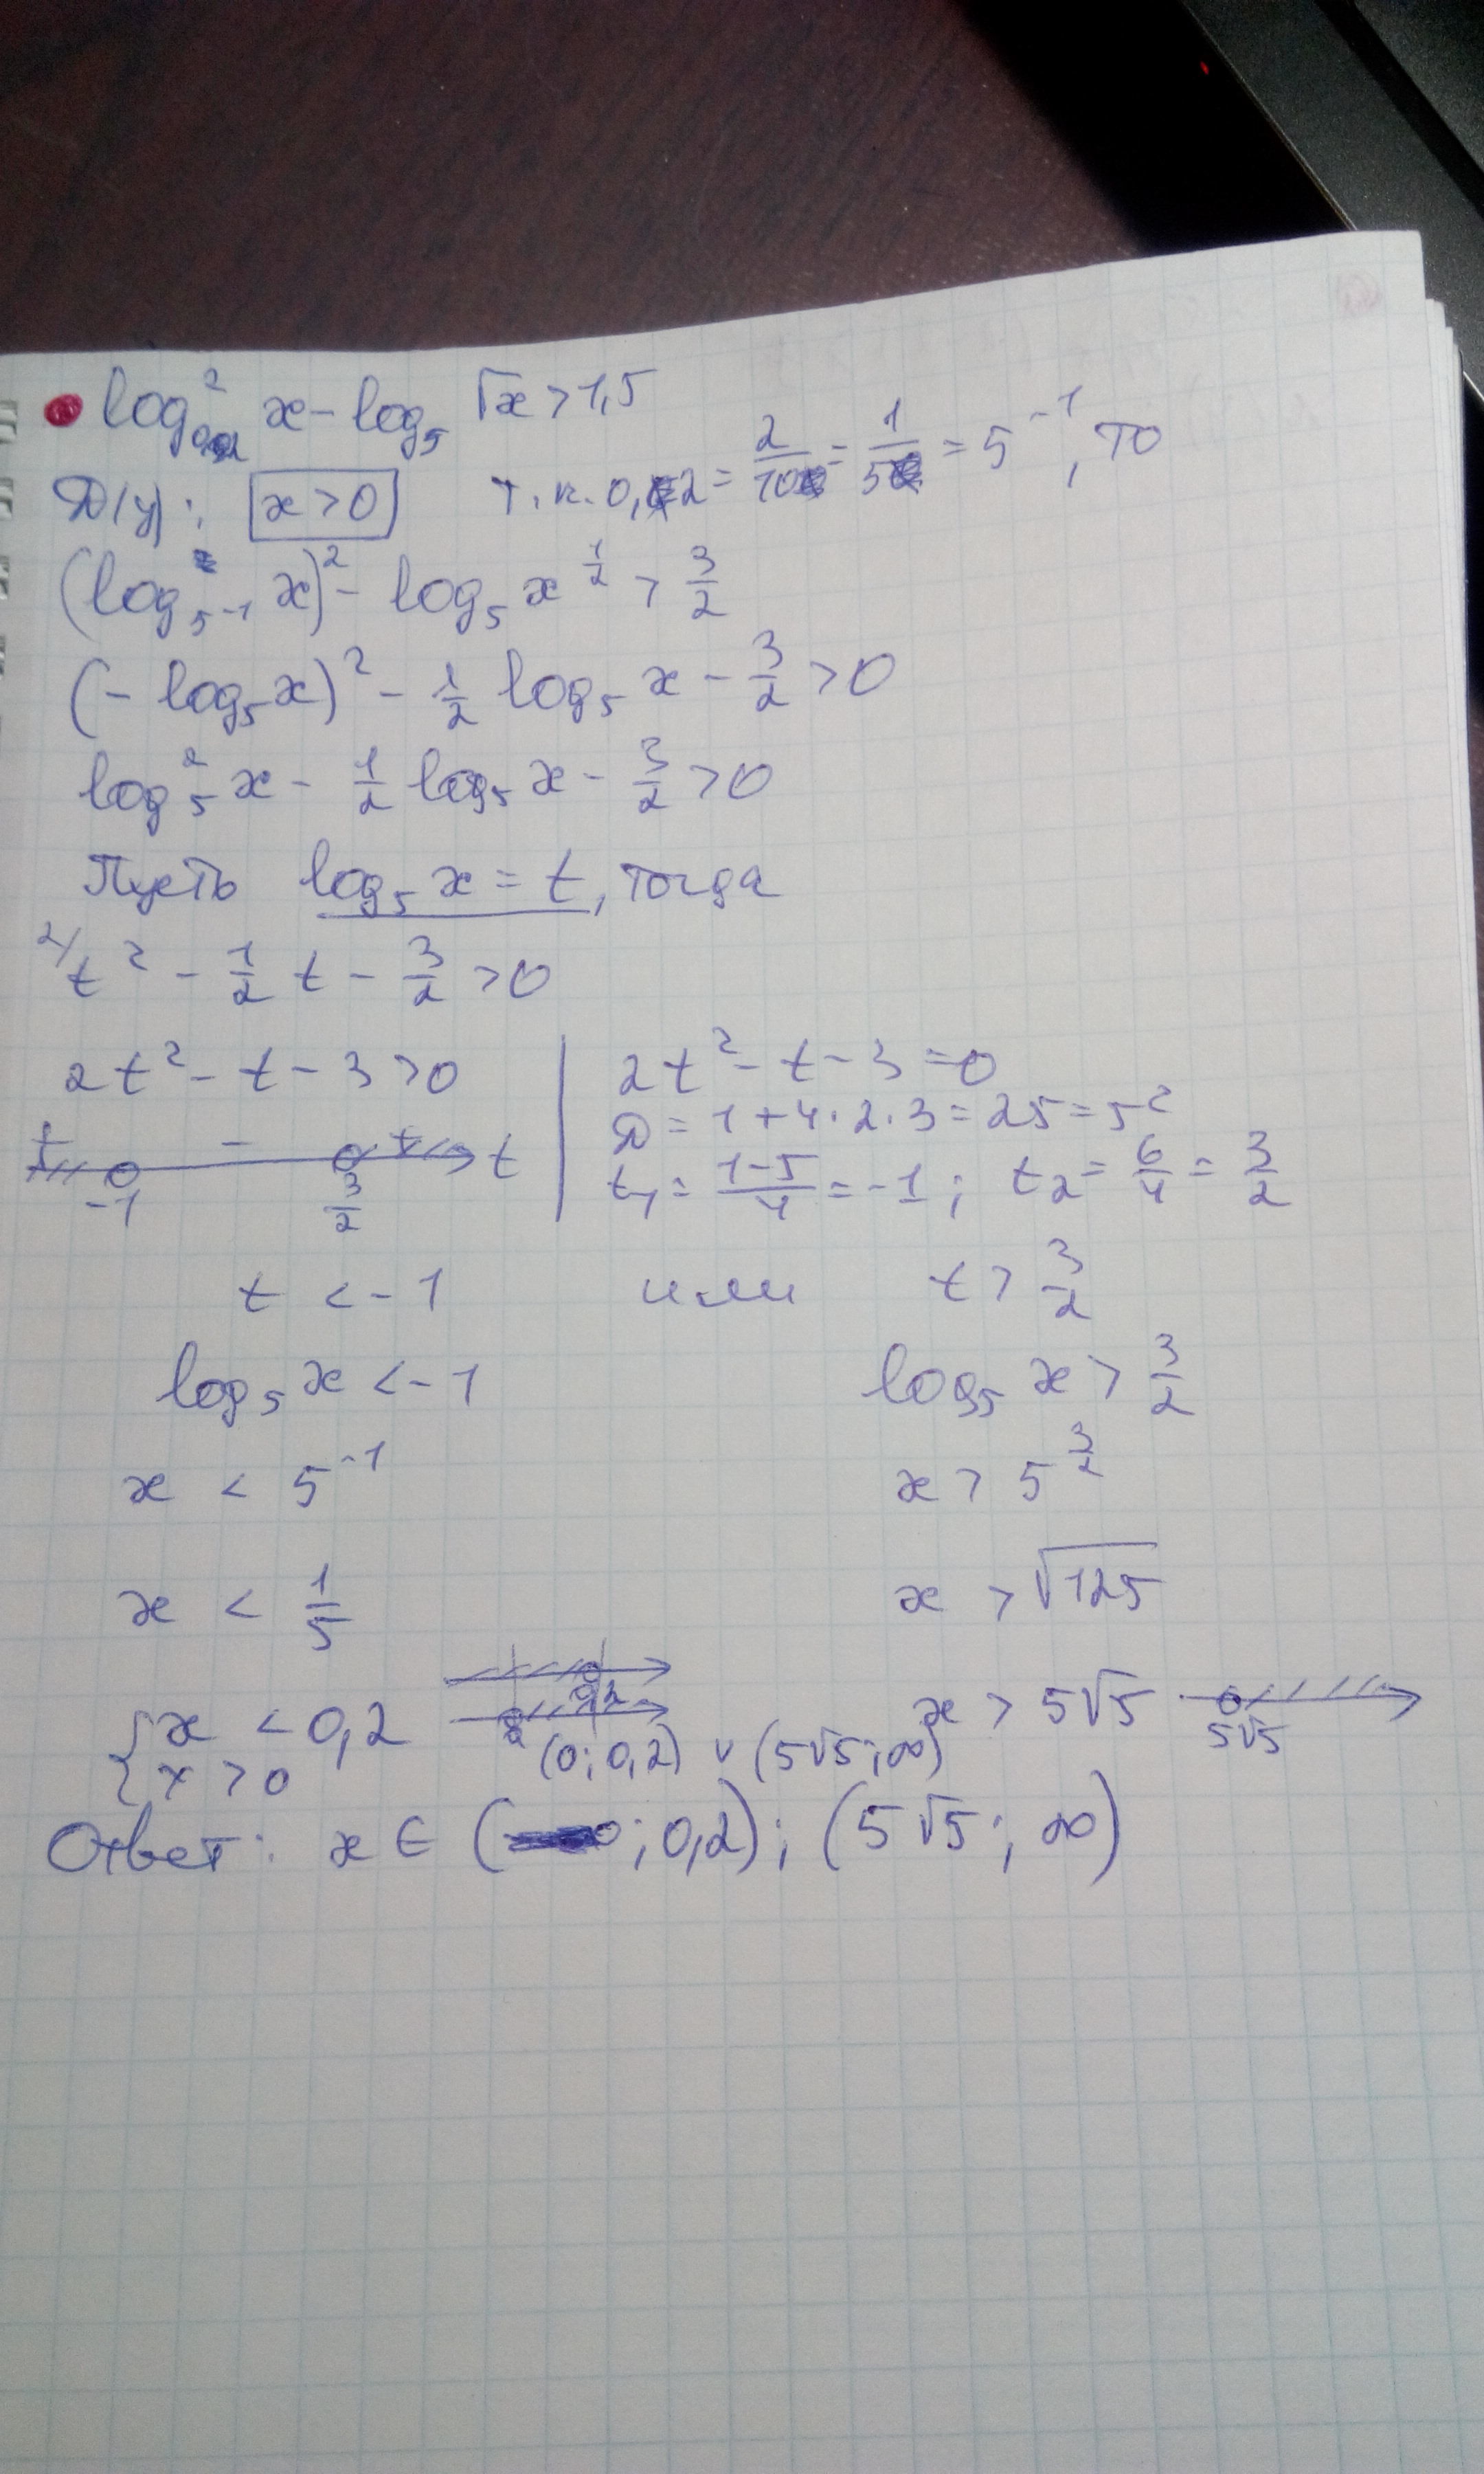 log²₀,₂ x - log₅ √x > 1,5
D(y): x > 0 т.к. 0,2 = 2/10 = 1/5 = 5⁻¹, то
(log₅₋₁ x)² - log₅ x^½ > 3/2
(- log₅ x)² - 1/2 log₅ x - 3/2 > 0
log²₅ x - 1/2 log₅ x - 3/2 > 0
Пусть log₅ x = t, тогда
2/ t² - 1/2 t - 3/2 > 0
2t² - t - 3 > 0
+ - + t
-1 3/2
2t² - t - 3 = 0
D = 1 + 4 · 2 · 3 = 25 = 5²
t₁ = (1-5)/4 = -1; t₂ = 6/4 = 3/2
t < -1 или t > 3/2
log₅ x < -1 log₅ x > 3/2
x < 5⁻¹ x > 5^(3/2)
x < 1/5 x > √125
{ x < 0,2 0,2 x > 5√5 5√5
x > 0 0 (0; 0,2) ∪ (5√5; ∞)
Ответ: x ∈ (0; 0,2); (5√5; ∞)